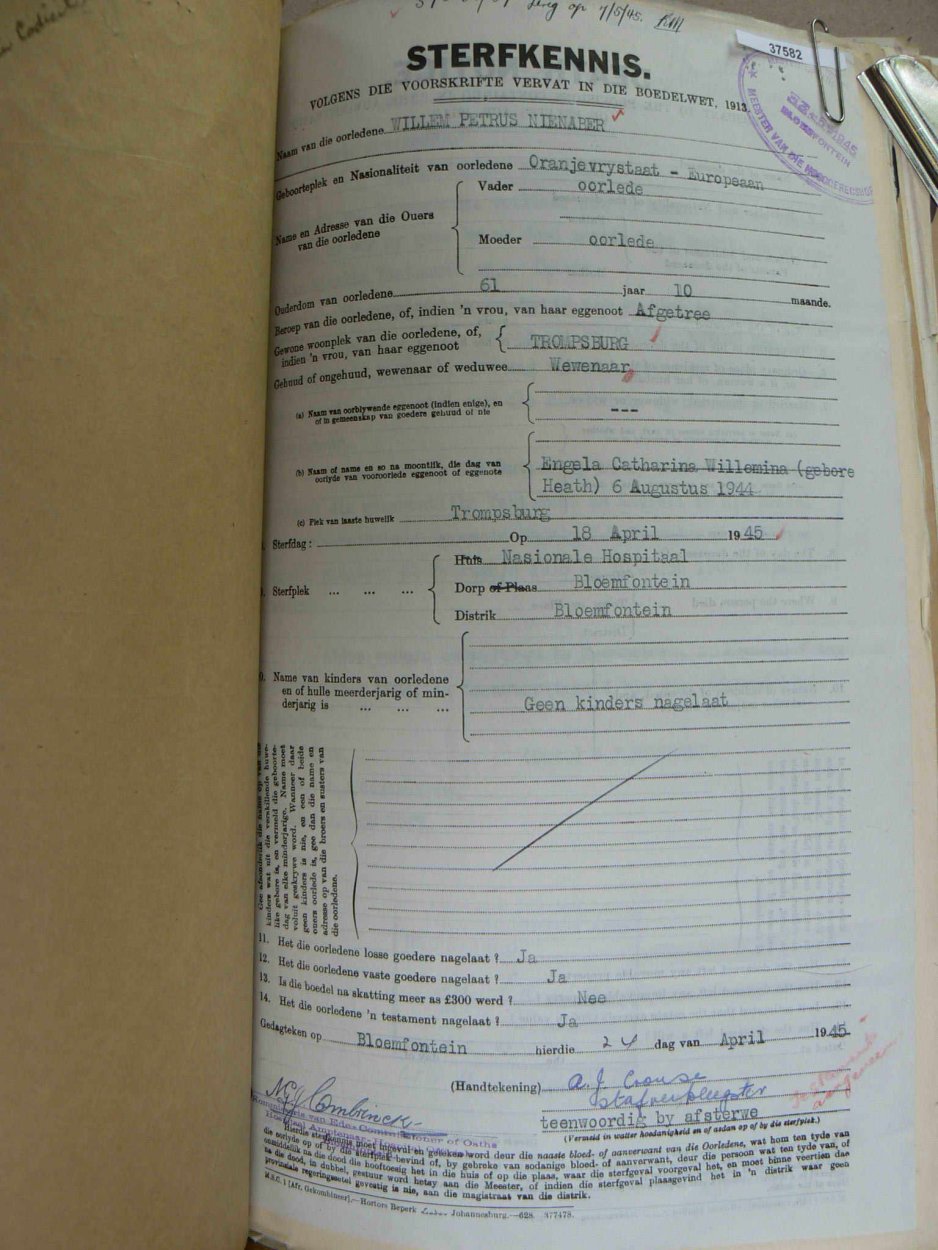 op 7/5/45.
37582
STERFKENNIS.
VOLGENS DIE VOORSKRIFTE VERVAT IN DIE BOEDELWET, 1913.
MEESTER VAN DIE HOOGGEREGSHOF
BLOEMFONTEIN
Naam van die oorledene WILLEM PETRUS NIENABER
Geboorteplek en Nasionaliteit van oorledene Oranjevrystaat - Europeaan
Name en Adresse van die Ouers van die oorledene
Vader oorlede
Moeder oorlede
Ouderdom van oorledene 61 jaar 10 maande.
Beroep van die oorledene, of, indien 'n vrou, van haar eggenoot Afgetree
Gewone woonplek van die oorledene, of, indien 'n vrou, van haar eggenoot TROMPSBURG
Gehuud of ongehuud, wewenaar of weduwee Wewenaar
(a) Naam van oorblywende eggenoot (indien enige), en of in gemeenskap van goedere gehuud of nie ---
(b) Naam of name en so na moontlik, die dag van oorlyde van vooroorlede eggenoot of eggenote
Engela Catharina Willemina (gebore
Heath) 6 Augustus 1944
(c) Plek van laaste huwelik Trompsburg
Sterfdag: Op 18 April 1945
Sterfplek ... ... ...
Huis Nasionale Hospitaal
Dorp of Plaas Bloemfontein
Distrik Bloemfontein
Name van kinders van oorledene
en of hulle meerderjarig of min-
derjarig is ... ... ...
Geen kinders nagelaat
kinders wat uit die verskillende huwe-
like gebore is, en vermeld die geboorte-
dag van elke minderjarige. Name moet
voluit geskrywe word. Wanneer daar
geen kinders is nie, en een of beide
ouers oorlede is, gee dan die name en
adresse op van die broers en susters van
die oorledene.
11. Het die oorledene losse goedere nagelaat? Ja
12. Het die oorledene vaste goedere nagelaat? Ja
13. Is die boedel na skatting meer as £300 werd? Nee
14. Het die oorledene 'n testament nagelaat? Ja
Gedagteken op Bloemfontein hierdie 24 dag van April 1945
(Handtekening) A. J. Crouse
Stafverpleegster
teenwoordig by afsterwe
(Vermeld in watter hoedanigheid en of aldan op of by die sterfplek.)
Combrinck
Kommissaris van Edes Commissioner of Oaths
Hierdie sterfkennis moet ingevul en geteken word deur die naaste bloed- of aanverwant van die Oorledene, wat hom ten tyde van
die oorlyde op of by die sterfplek bevind of, by gebreke van sodanige bloed- of aanverwant, deur die persoon wat ten tyde van, of
onmiddellik na die dood die hooftoesig het in die huis of op die plaas, waar die sterfgeval voorgeval het, en moet binne veertien dae
na die dood, in dubbel, gestuur word hetsy aan die Meester, of indien die sterfgeval plaasgevind het in 'n distrik waar geen
provinsiale regeringsetel gevestig is nie, aan die magistraat van die distrik.
M.S.C. 1 [Afr. Gekombineer].—Hortors Beperk Johannesburg.—628. 377478.